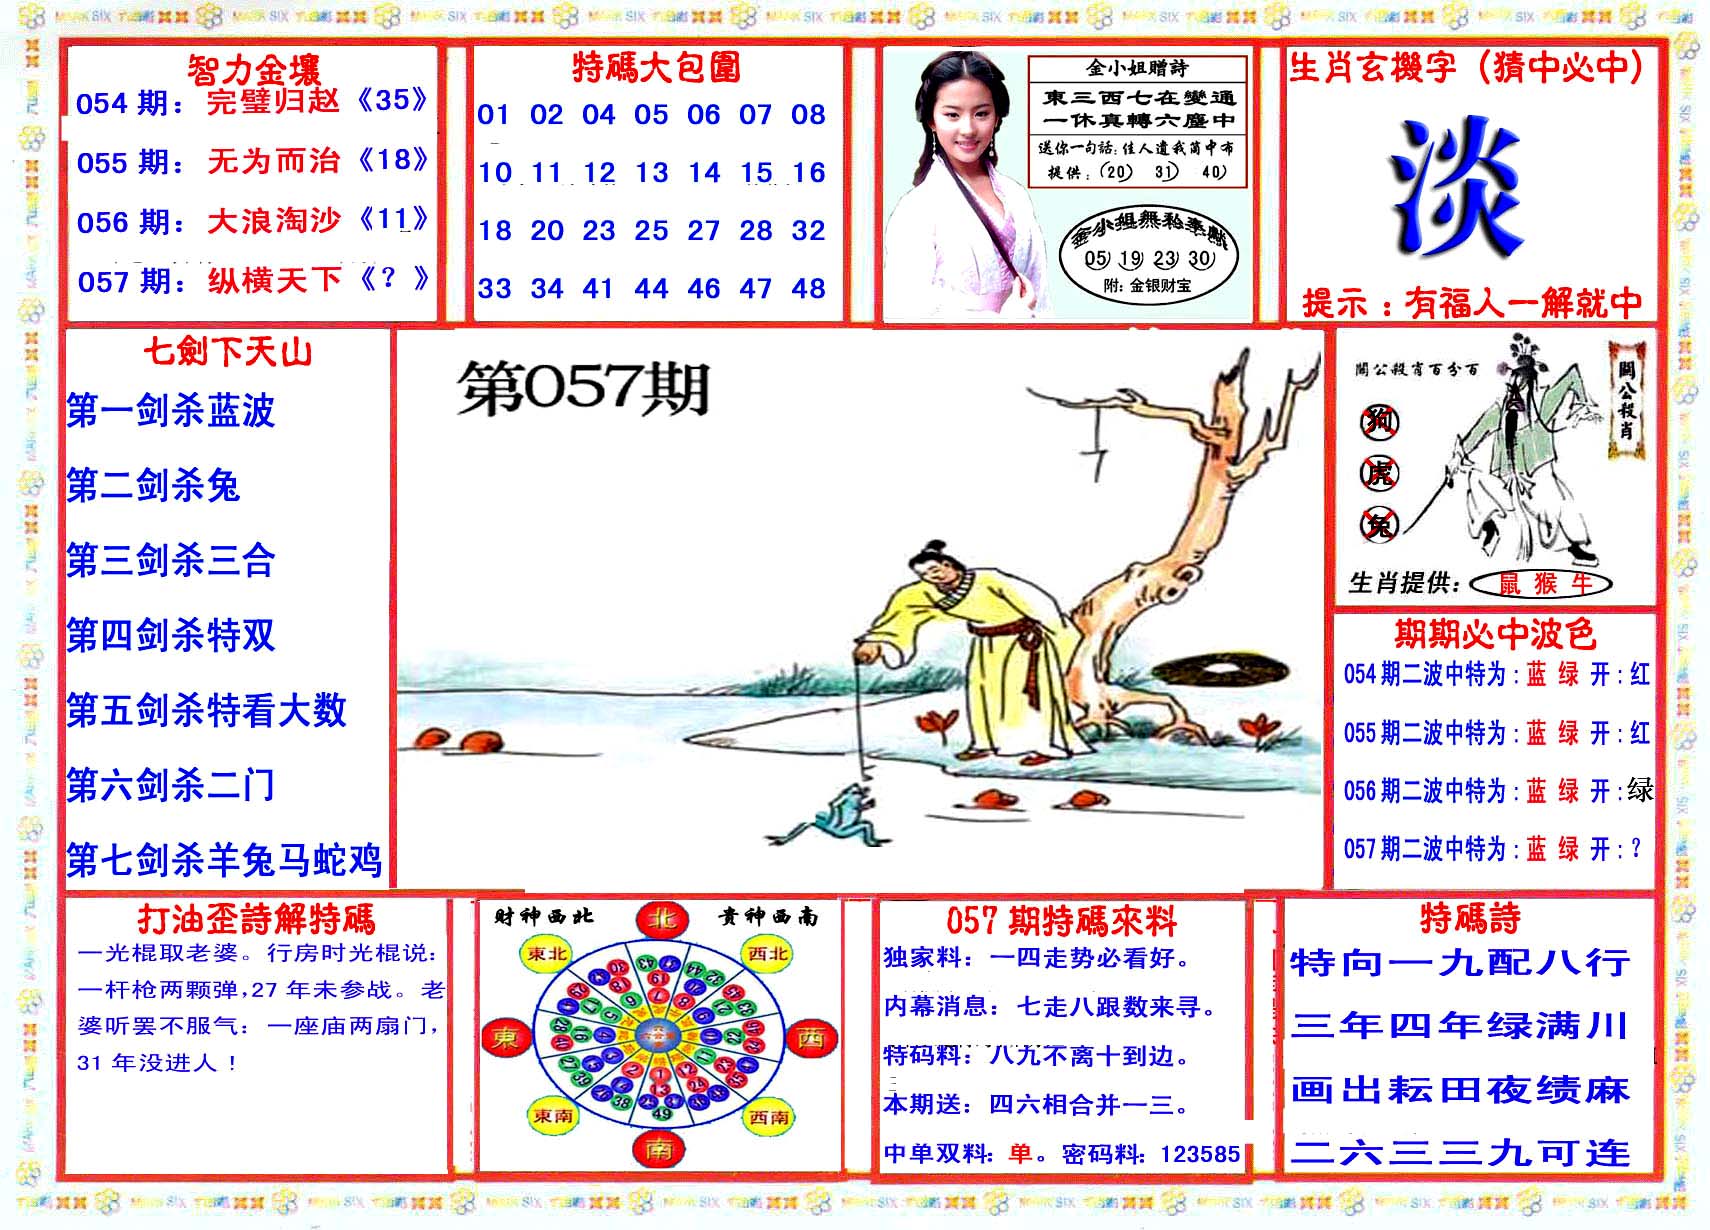 智力金壤
054 期：完璧归赵《35》
055 期：无为而治《18》
056 期：大浪淘沙《11》
057 期：纵横天下《？》
特碼大包圍
01 02 04 05 06 07 08
10 11 12 13 14 15 16
18 20 23 25 27 28 32
33 34 41 44 46 47 48
金小姐贈詩
東三西七在變通
一休真轉六塵中
送你一句話：佳人遺我茼中布
提供：（20） 31） 40）
金小姐無私奉献
05 19 23 30
附：金银财宝
生肖玄機字（猜中必中）
淡
提示：有福人一解就中
七劍下天山
第一剑杀蓝波
第二剑杀兔
第三剑杀三合
第四剑杀特双
第五剑杀特看大数
第六剑杀二门
第七剑杀羊兔马蛇鸡
第057期
關公殺肖百分百
關公殺肖
狗
虎
兔
生肖提供：鼠 猴 牛
期期必中波色
054期二波中特为：蓝 绿 开：红
055期二波中特为：蓝 绿 开：红
056期二波中特为：蓝 绿 开：绿
057期二波中特为：蓝 绿 开：？
打油歪詩解特碼
一光棍取老婆。行房时光棍说：
一杆枪两颗弹，27 年未参战。老
婆听罢不服气：一座庙两扇门，
31 年没进人！
財神西北
貴神西南
北
東北
西北
東
西
東南
西南
南
057 期特碼來料
独家料：一四走势必看好。
内幕消息：七走八跟数来寻。
特码料：八九不离十到边。
本期送：四六相合并一三。
中单双料：单。密码料：123585
特碼詩
特向一九配八行
三年四年绿满川
画出耘田夜绩麻
二六三三九可连